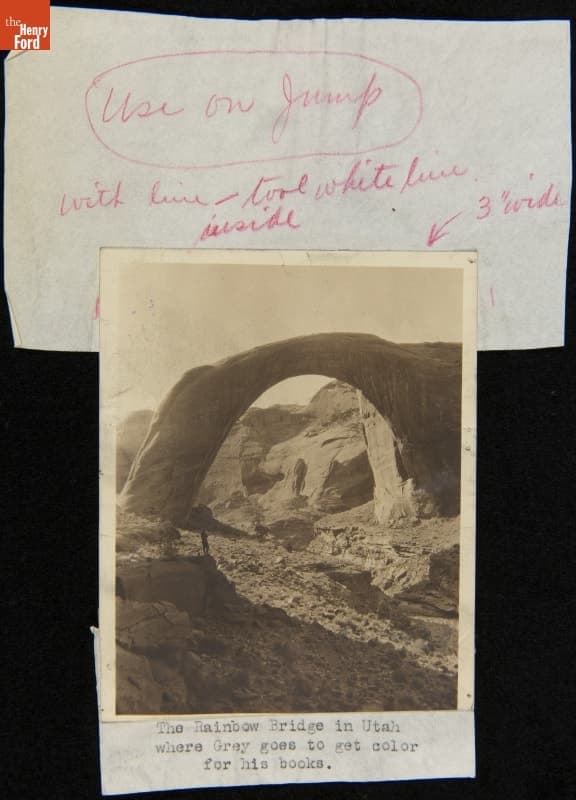 the
Henry
Ford
Use on Jump
with line - tool white line
inside
3" wide
The Rainbow Bridge in Utah
where Grey goes to get color
for his books.